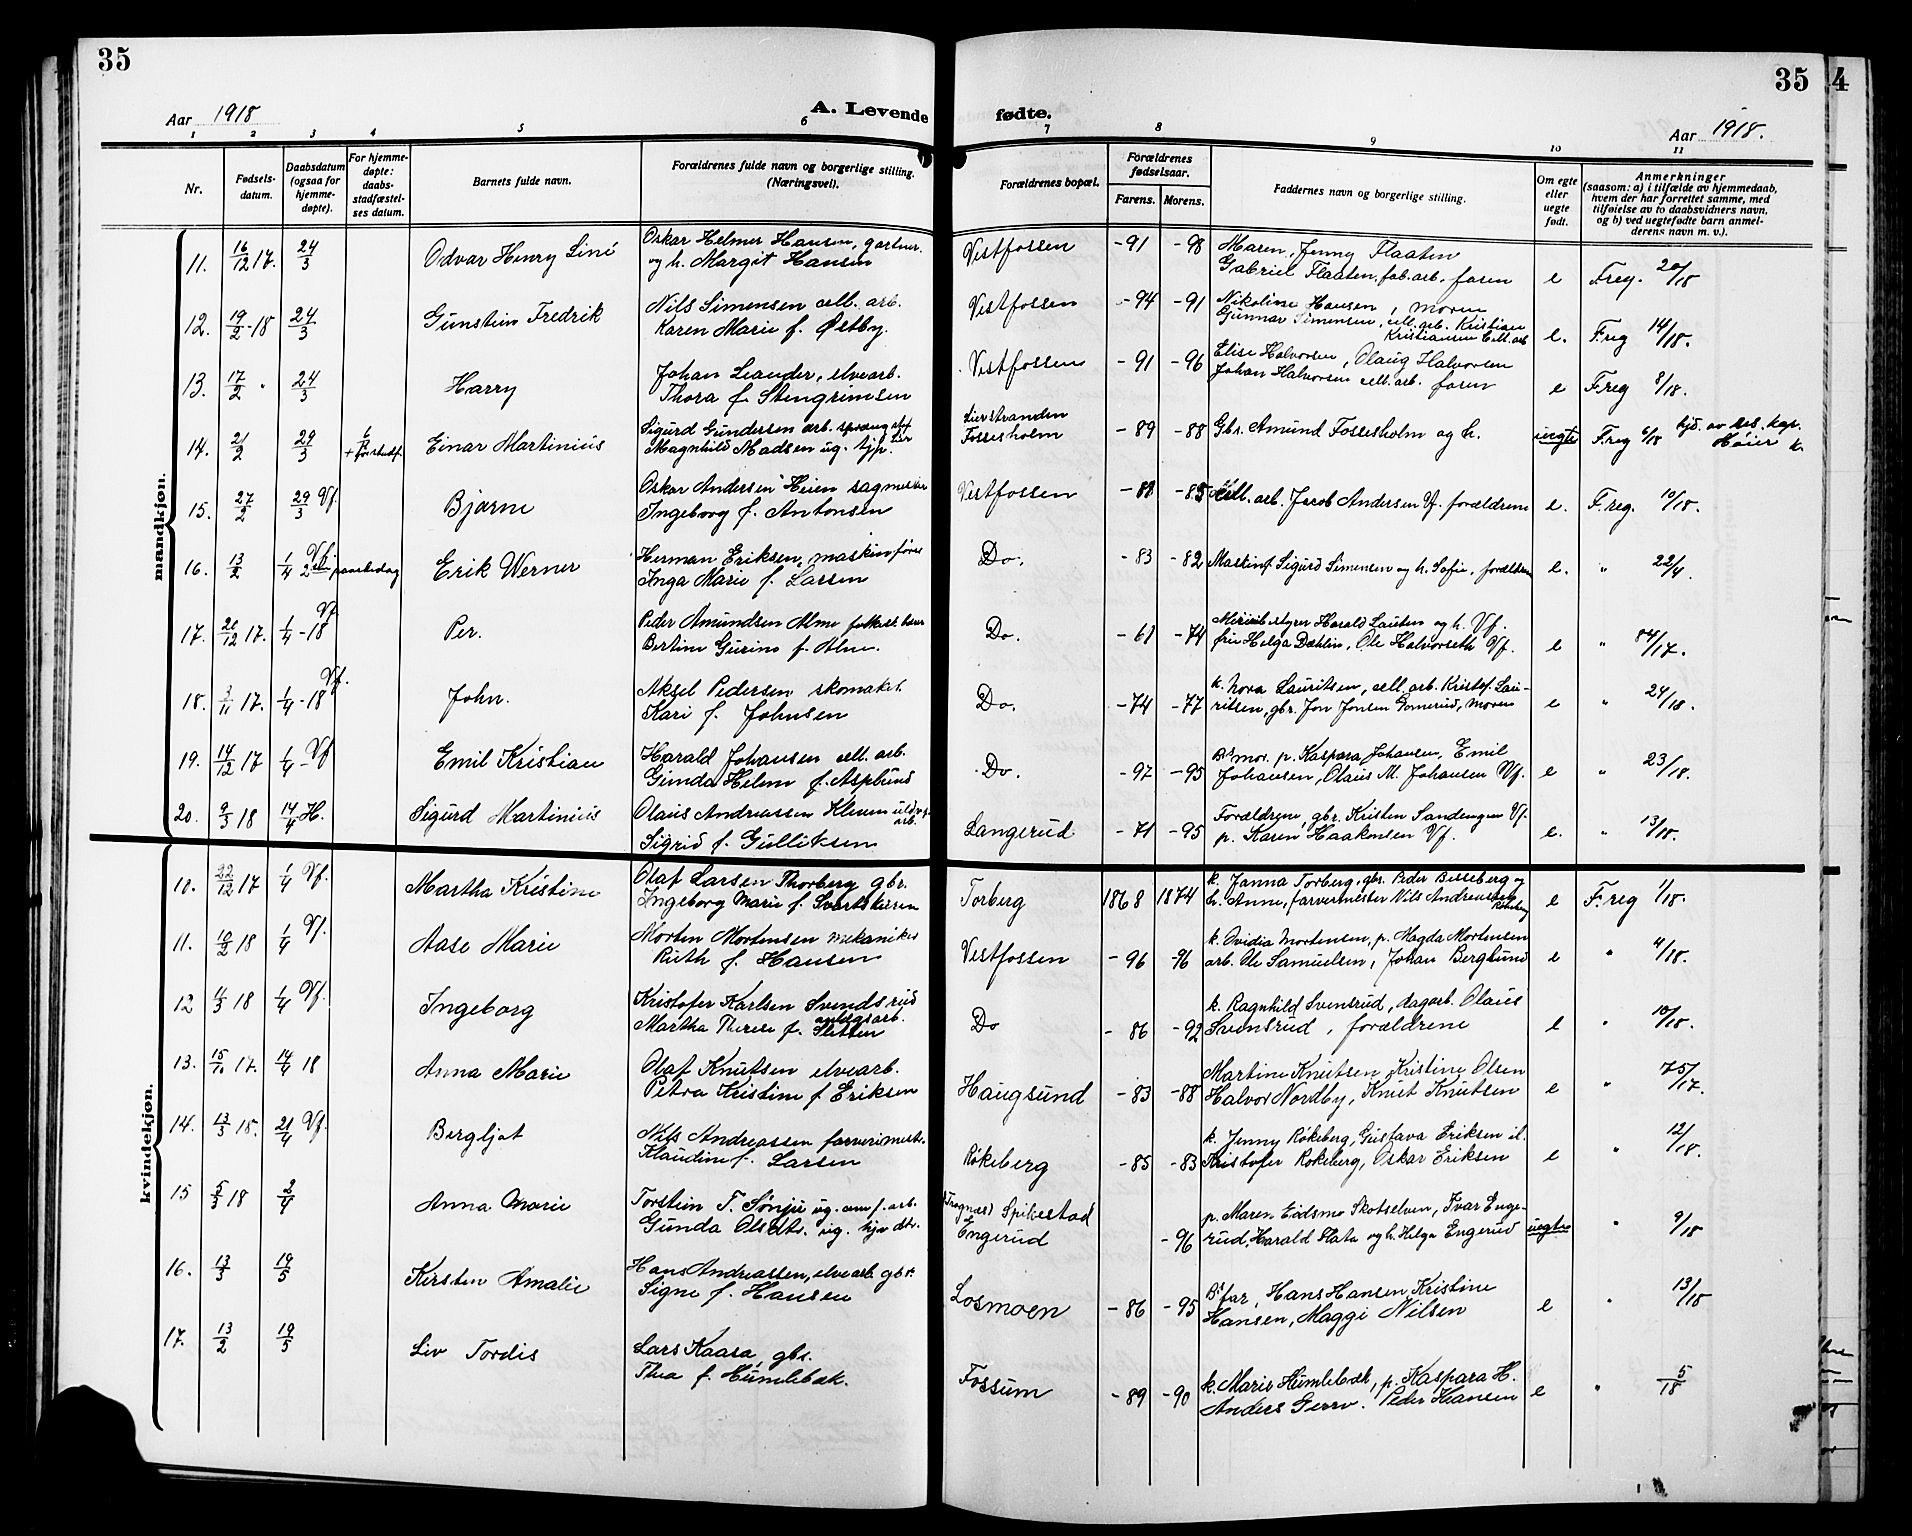 35
Aar 1918
A. Levende
1 2 3 4 5 6
Nr.
Fødsels-
datum.
Daabsdatum
(ogsaa for
hjemme-
døpte).
For hjemme-
døpte:
daabs-
stadfæstel-
ses datum.
Barnets fulde navn.
Forældrenes fulde navn og borgerlige stilling.
(Næringsvei).
mandkjøn.
11. 16/12 17. 24/3 Odvar Henry Oskar Helmer Hansen, gartner.
og h. Margit Hansen
12. 19/2 - 18 24/3 Gunstein Fredrik Nils Simensen cell. arb.
Karen Marie f. Østby.
13. 17/2 " 24/3 Harry Johan Leander, elvearb.
Thora f. Stengrimsen
14. 21/2 29/3 Einar Martinius Sigurd Gundersen arb.
Magnhild Madsen ug. tjp.
15. 27/2 29/3 Vf. Bjarne Oskar Andersen Heien sagmester
Ingeborg f. Antonsen
16. 13/2 1/4 paaskedag Erik Werner Herman Eriksen, maskinfører
Inga Marie f. Larsen
17. 21/12 17. 1/4 - 18 Vf. Per. Peder Amundsen Alme
Bertine Gurine f. Alme.
18. 3/11 17. 1/4 - 18 Vf. John. Aksel Pedersen skomaker
Kari f. Johnsen
19. 14/12 17 1/4 - Vf Emil Kristian Harald Johansen cell. arb.
Gunda Helene f. Asplund
20. 9/3 18 14/4 H. Sigurd Martinius Olaus Andreassen
arb.
Sigrid f. Gulliksen
kvindekjøn.
10. 22/12 17 1/4 Vf. Martha Kristine Olaf Larsen Thorberg gbr.
Ingeborg Marie f.
11. 10/2 18 1/4 Vf. Aase Marie Morten Mortensen mekaniker
Ruth f. Hansen
12 11/3 18 1/4 Vf. Ingeborg Kristofer Karlsen Svendsrud
anlægsarb.
Martha Therese f. Sletten
13. 15/10 17. 14/4 18 Anna Marie Olaf Knutsen elvearb.
Petra Kristine f Eriksen
14. 13/3 18. 21/4 Vf. Bergljot Nils Andreassen farverimester
Klaudine f. Larsen
15 5/3 18 2/4 Anna Marie Torstein T. Sønju ug.
Gunda Olsdtr. ug. hjv. dtr.
16. 13/3 19/5 Kirsten Amalie Hans Andreassen, elvearb. gbr.
Signe f. Hansen
17. 13/2 19/5 Liv Tordis Lars Kaasa, gbr.
Thea f. Humlebæk.
35
4
fødte.
Aar 1918.
7 8 9 10 11
Forældrenes bopæl.
Forældrenes
fødselsaar.
Farens. Morens.
Faddernes navn og borgerlige stilling.
Om egte
eller
uegte
født.
Anmerkninger
(saasom: a) i tilfælde av hjemmedaab,
hvem der har forrettet samme, med
tilføielse av to daabsvidners navn,
og b) ved uegtefødte barn anmel-
derens navn m. v.).
Vestfossen - 91 - 98 Maren, Jenny Flaaten
Gabriel Flaaten, fab. arb. faren e Freg. 20/18
Vestfossen - 94 - 91 Nikoline Hansen, moren
Gunnar Simensen, cell. arb. Kristian
Kristiansen Cell. arb e. Freg 14/18.
Vestfossen - 91 - 96 Elise Halvorsen, Olaug Halvorsen
Johan Halvorsen cell. arb. faren e Freg 8/18.
Lierstranden
Fossesholm - 89 - 88 Gbr. Amund Fossesholm og h. uegte Freg 6/18 hjd. av res. kap.
Høier k.
Vestfossen - 88 - 85 Cell. arb. Jacob Andersen Vf. forældrene e. Freg. 10/18.
Do. - 83 - 82 Maskinf. Sigurd Simensen og h. Sofie, forældrene e. " 22/4.
Do. - 61 - 74 Meieribestyrer Harald Lauten og h. Vf.
fru Helga Dæhlin, Ole Halvorseth Vf. e " 84/17.
Do. - 74 - 77 k. Nora Lauritsen, cell. arb. Kristof. Lau-
ritsen, gbr. Jon Jonsen Gomerud, moren e " 24/18.
Do. - 97 - 95 Br. mor. p. Kaspara Johansen, Emil
Johansen, Olaus M. Johansen Vf. e " 23/18.
Langerud - 71 - 95 Forældrene, gbr. Kristen Sandengen Vf.
p. Karen Haakonsen Vf. e. " 13/18.
Torberg 1868 1874 k. Janna Torberg, gbr. Peder Besseberg og
h. Anne, farvermester Nils Andreassen
Røkeberg e Freg 1/18.
Vestfossen - 96 - 96 k. Ovidia Mortensen, p. Magda Mortensen
arb. Ole Samuelsen, Johan Berglund e " 4/18.
Do - 86 - 92 k. Ragnhild Svensrud, dagarb. Olaus
Svensrud, forældrene e " 10/18.
Haugsund - 83 - 88 Martine Knutsen, Kristine Olsen
Halvor Nordby, Knut Knutsen e " 75/17.
Røkeberg - 85 - 83 k. Jenny Røkeberg, Gustava Eriksen
Kristofer Røkeberg, Oskar Eriksen e " 12/18.
Spikestad
Engerud - 96 p. Maren Eidsmo Skotselven, Ivar Enge-
rud, Harald Slata og h. Helga Engerud uegte " 9/18
Losmoen - 86 - 95 Br. far, Hans Hansen Kristine
Hansen, Maggi Nilsen e " 13/18
Fossum - 89 - 90 k. Marie Humlebæk, p. Kaspara H.
Anders Gerrv. Peder Hansen e " 5/18